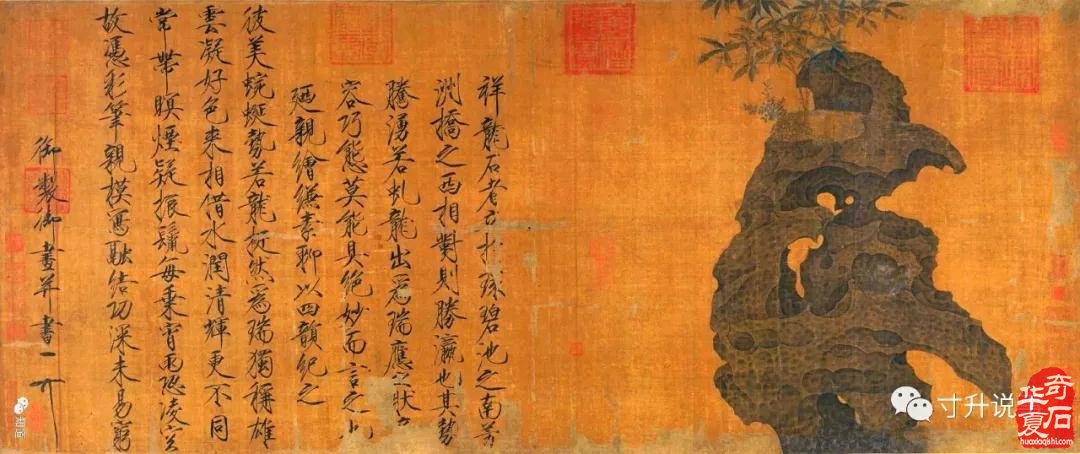 祥龍石者立於環碧池之南芳
洲橋之西相對則勝瀛也其勢
騰湧若虬龍出為瑞應之狀奇
容巧態莫能具絕妙而言之也
廼親繪縑素聊以四韻紀之
彼美蜿蜒勢若龍挺然為瑞獨稱雄
雲凝好色來相借水潤清輝更不同
常帶暝煙疑振鬣每乘宵雨恐凌空
故憑彩筆親模寫融結功深未易窮
御製御畫并書
寸升说
华夏奇石
huaxiaqishi.com